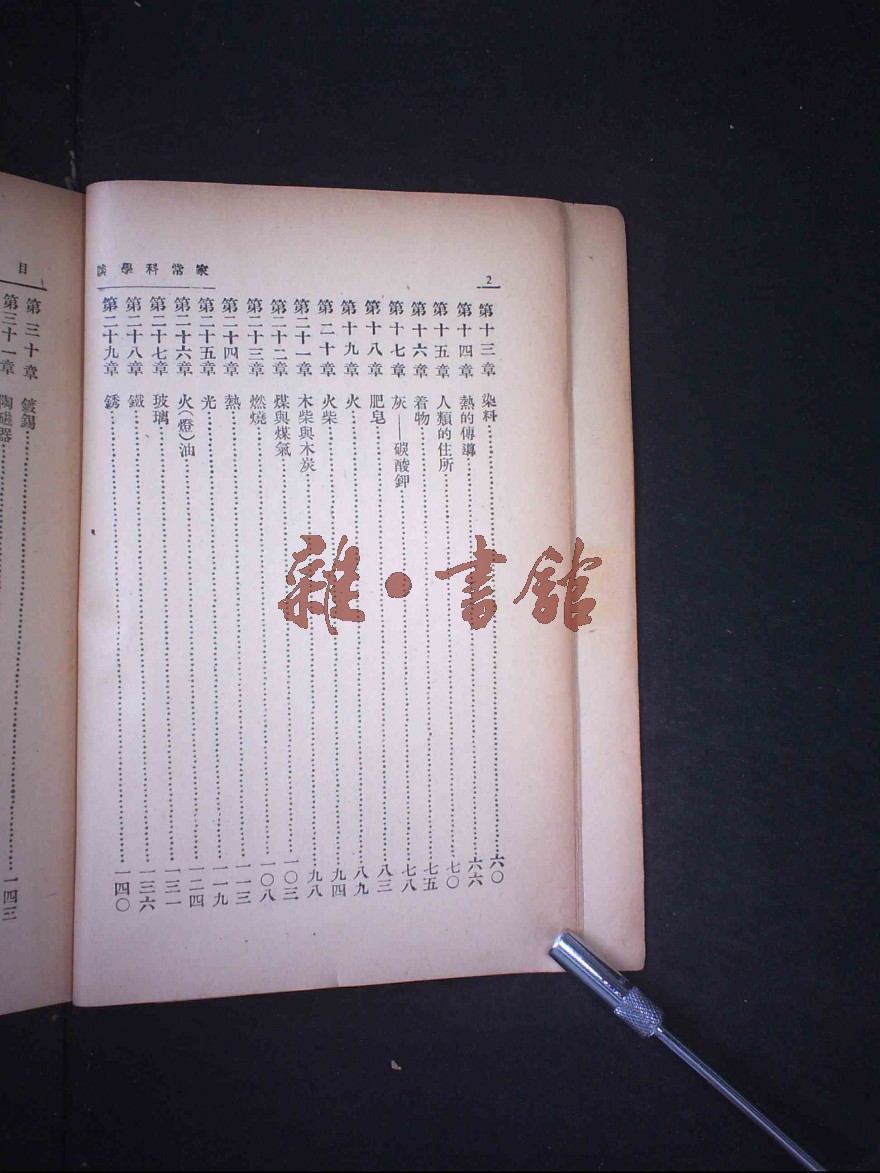 2
家常科學談
第十三章 染料……六〇
第十四章 熱的傳導……六六
第十五章 人類的住所……七〇
第十六章 着物……七五
第十七章 灰——碳酸鉀……七八
第十八章 肥皂……八三
第十九章 火……八九
第二十章 火柴……九四
第二十一章 木柴與木炭……九八
第二十二章 煤與煤氣……一〇三
第二十三章 燃燒……一〇八
第二十四章 熱……一一三
第二十五章 光……一一九
第二十六章 火(燈)油……一二四
第二十七章 玻璃……一三一
第二十八章 鐵……一三六
第二十九章 銹……一四〇
目
第三十章 鍍錫……一四三
第三十一章 陶磁器
雜·書館